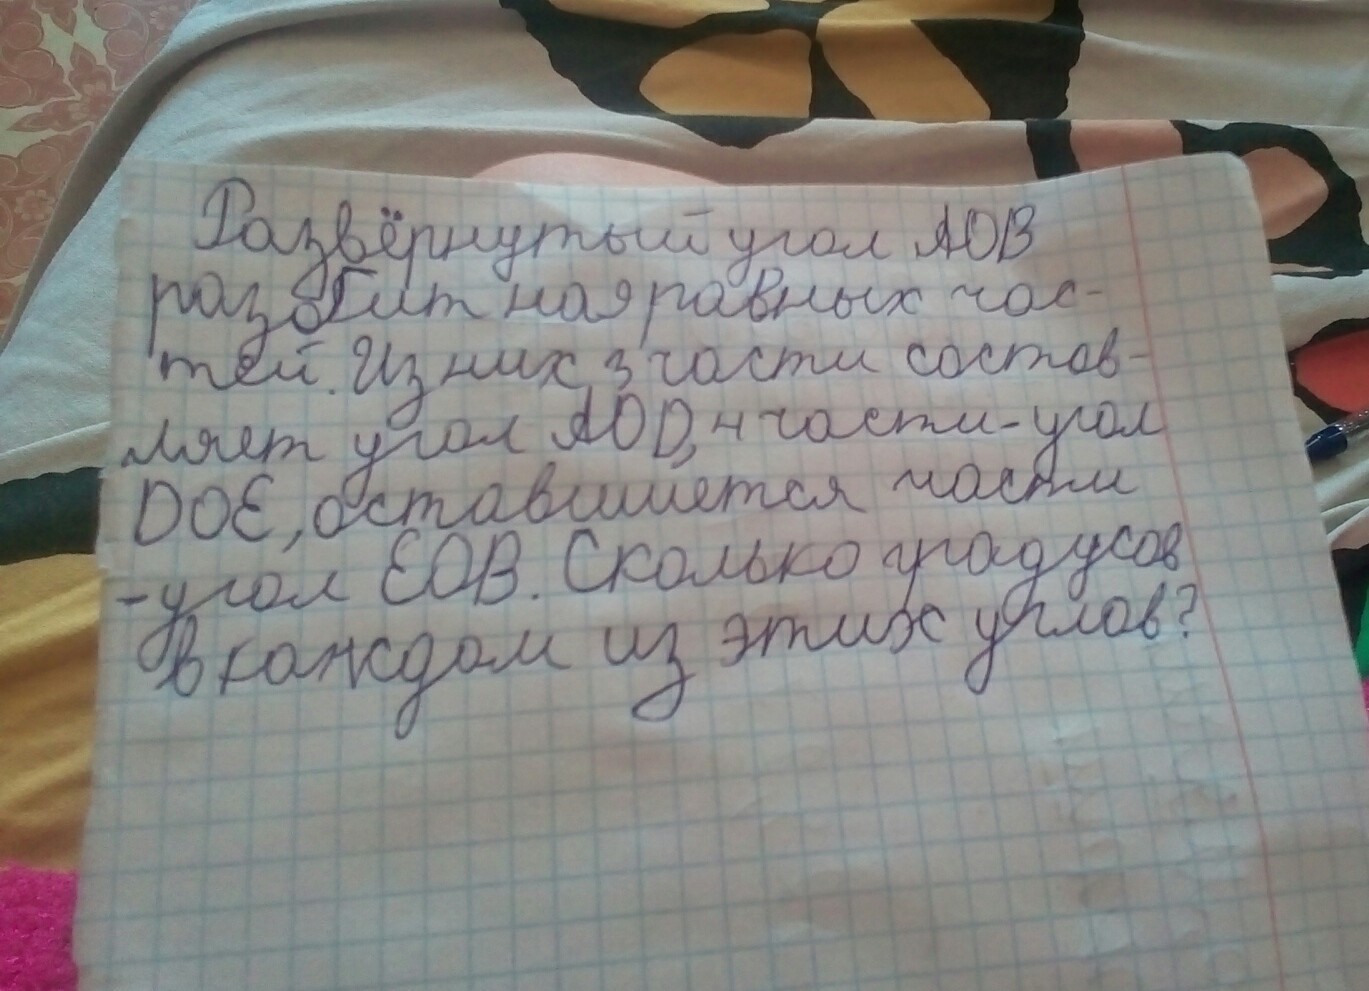 Развёрнутый угол АОВ
разбит на 9 равных час-
тей. Из них 3 части состав-
ляет угол AOD, 4 части - угол
DOE, оставшиется части
- угол ЕОВ. Сколько градусов
в каждом из этих углов?